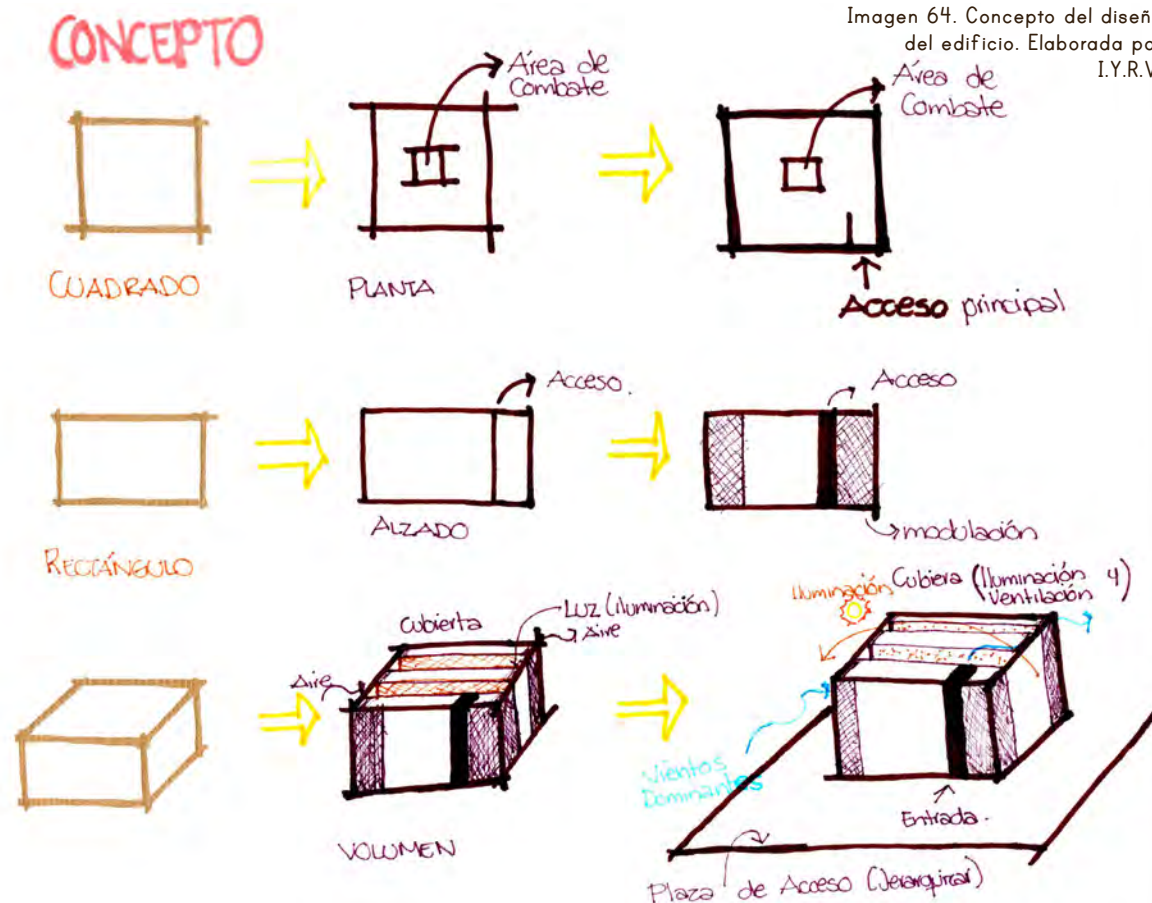 CONCEPTO
Imagen 64. Concepto del diseñ
del edificio. Elaborada po
I.Y.R.V
Área de
Combate
Área de
Combate
CUADRADO
PLANTA
Acceso principal
Acceso.
Acceso
RECTÁNGULO
ALZADO
modulación
Cubierta
LUZ (iluminación)
Aire
Aire
Iluminación
Cubiera (Iluminación y)
Ventilación
Vientos
Dominantes
Entrada.
VOLUMEN
Plaza de Acceso (Jerarquizar)